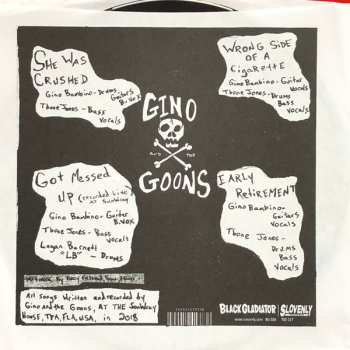 She Was
Crushed
Gino Bambino-Drums
Guitars
B.Vox
Thone Jones-Bass
Vocals
Wrong Side
of a
Cigarette
Gino Bambino-Guitar
Vocals
Thone Jones-Drums
Bass
Vocals
GINO
AND THE
GOONS
Got Messed
UP (recorded Live
AT Soulakay
Gino Bambino-Guitar
B.VOX
Thone Jones-Bass
Vocals
Logan Barnett
"LB" - Drums
EARLY
RETIREMENT
Gino Bambino-
Guitars
Vocals
Thone Jones-
Drums
Bass
Vocals
All songs Written and recorded by
Gino and the Goons, AT THE
House, TPA, FLA, USA, in 2018
BLACK GLADIATOR
SLOVENLY